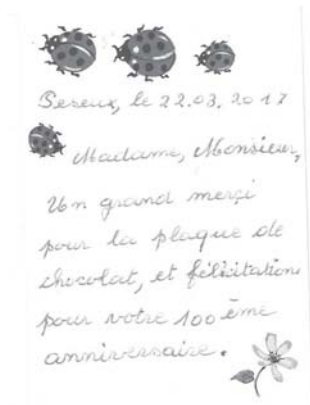 Peseux, le 22.03.2017
Madame, Monsieur,
Un grand merçi
pour la plaque de
chocolat, et félicitations
pour votre 100ème
anniversaire.